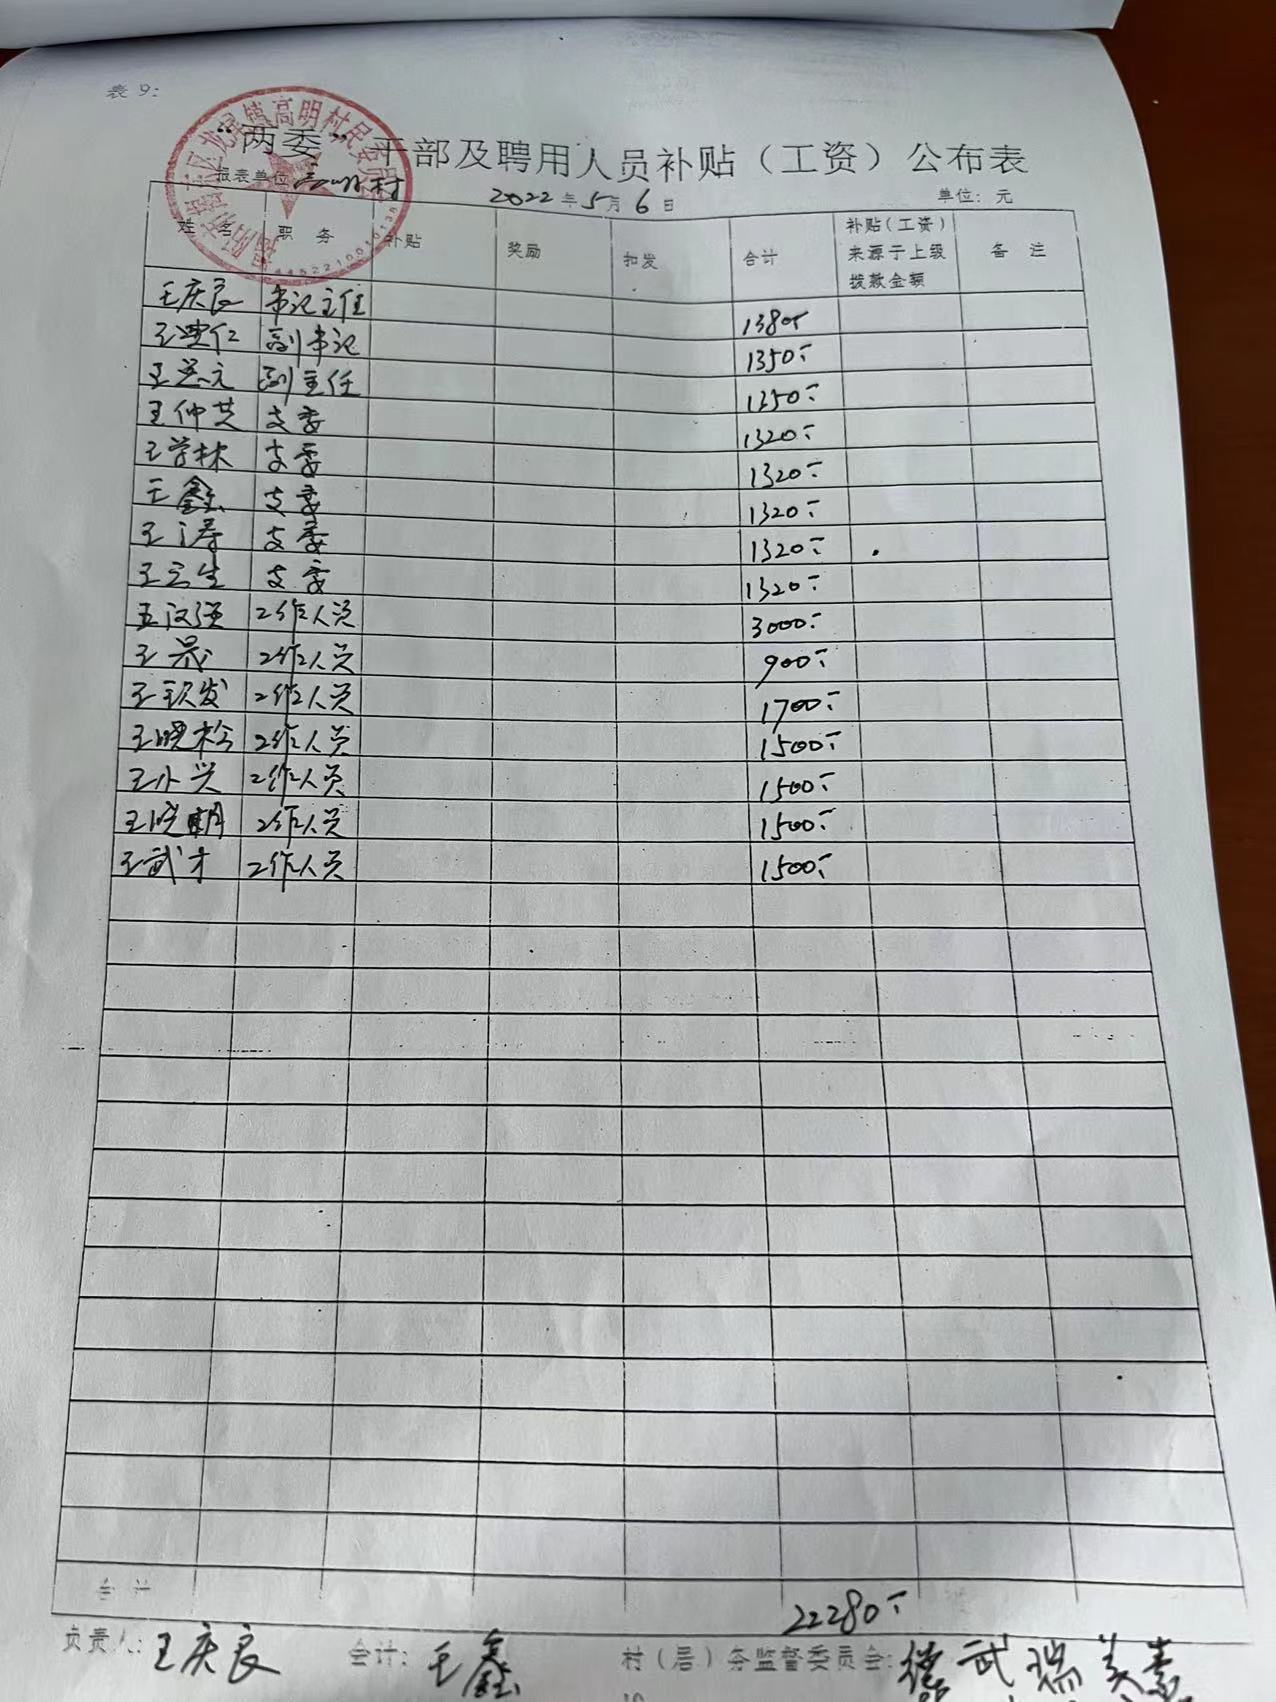 表 9:
"两委"干部及聘用人员补贴(工资)公布表
报表单位 高明村 2022年5月6日 单位:元
姓名 职务 补贴 奖励 扣发 合计 补贴(工资)来源于上级拨款金额 备注
王庆良 书记主任 1380
王建仁 副书记 1350
副主任 1350
王仲芝 支委 1320
王学林 支委 1320
王鑫 支委 1320
王涛 支委 1320
王云生 支委 1320
王汉强 工作人员 3000
工作人员 900
王钦发 工作人员 1700
王晓松 工作人员 1500
王小兴 工作人员 1500
王晓明 工作人员 1500
王武才 工作人员 1500
合计 22280
负责人:王庆良 会计:王鑫 村(居)务监督委员会: 武瑞